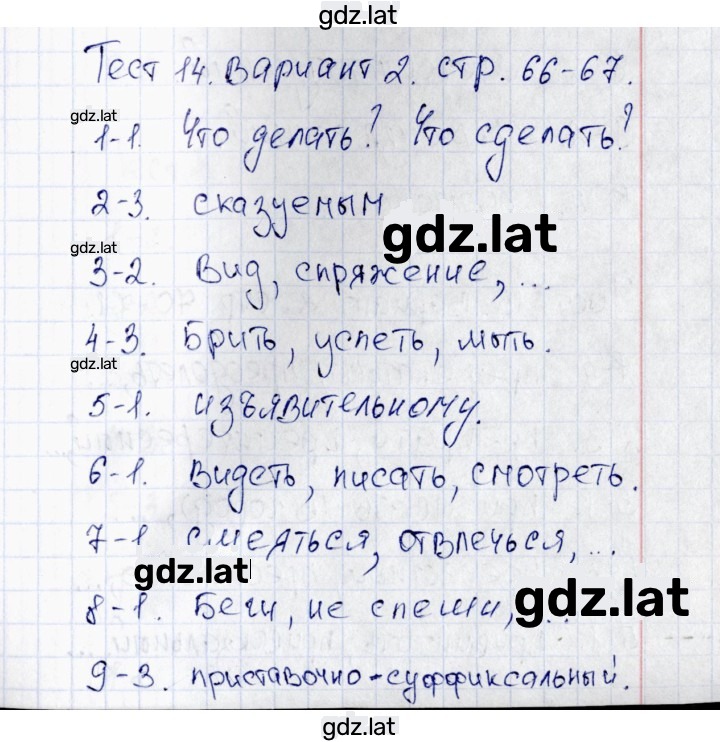 gdz.lat
Тест 14. Вариант 2. стр. 66-67.
gdz.lat
1-1. Что делать? Что сделать?
2-3. сказуемым
gdz.lat
gdz.lat
3-2. Вид, спряжение, ...
4-3. Брить, успеть, мыть.
gdz.lat
5-1. изъявительному.
6-1. Видеть, писать, смотреть.
7-1 смеяться, отвлечься, ...
gdz.lat
8-1. Беги, не спеши, ...
gdz.lat
9-3. приставочно-суффиксальный.
gdz.lat